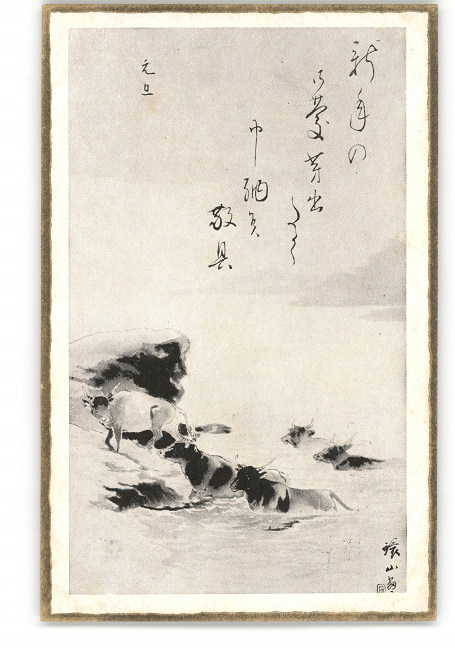 新年の
御慶芽出たく
申納候
敬具
元旦